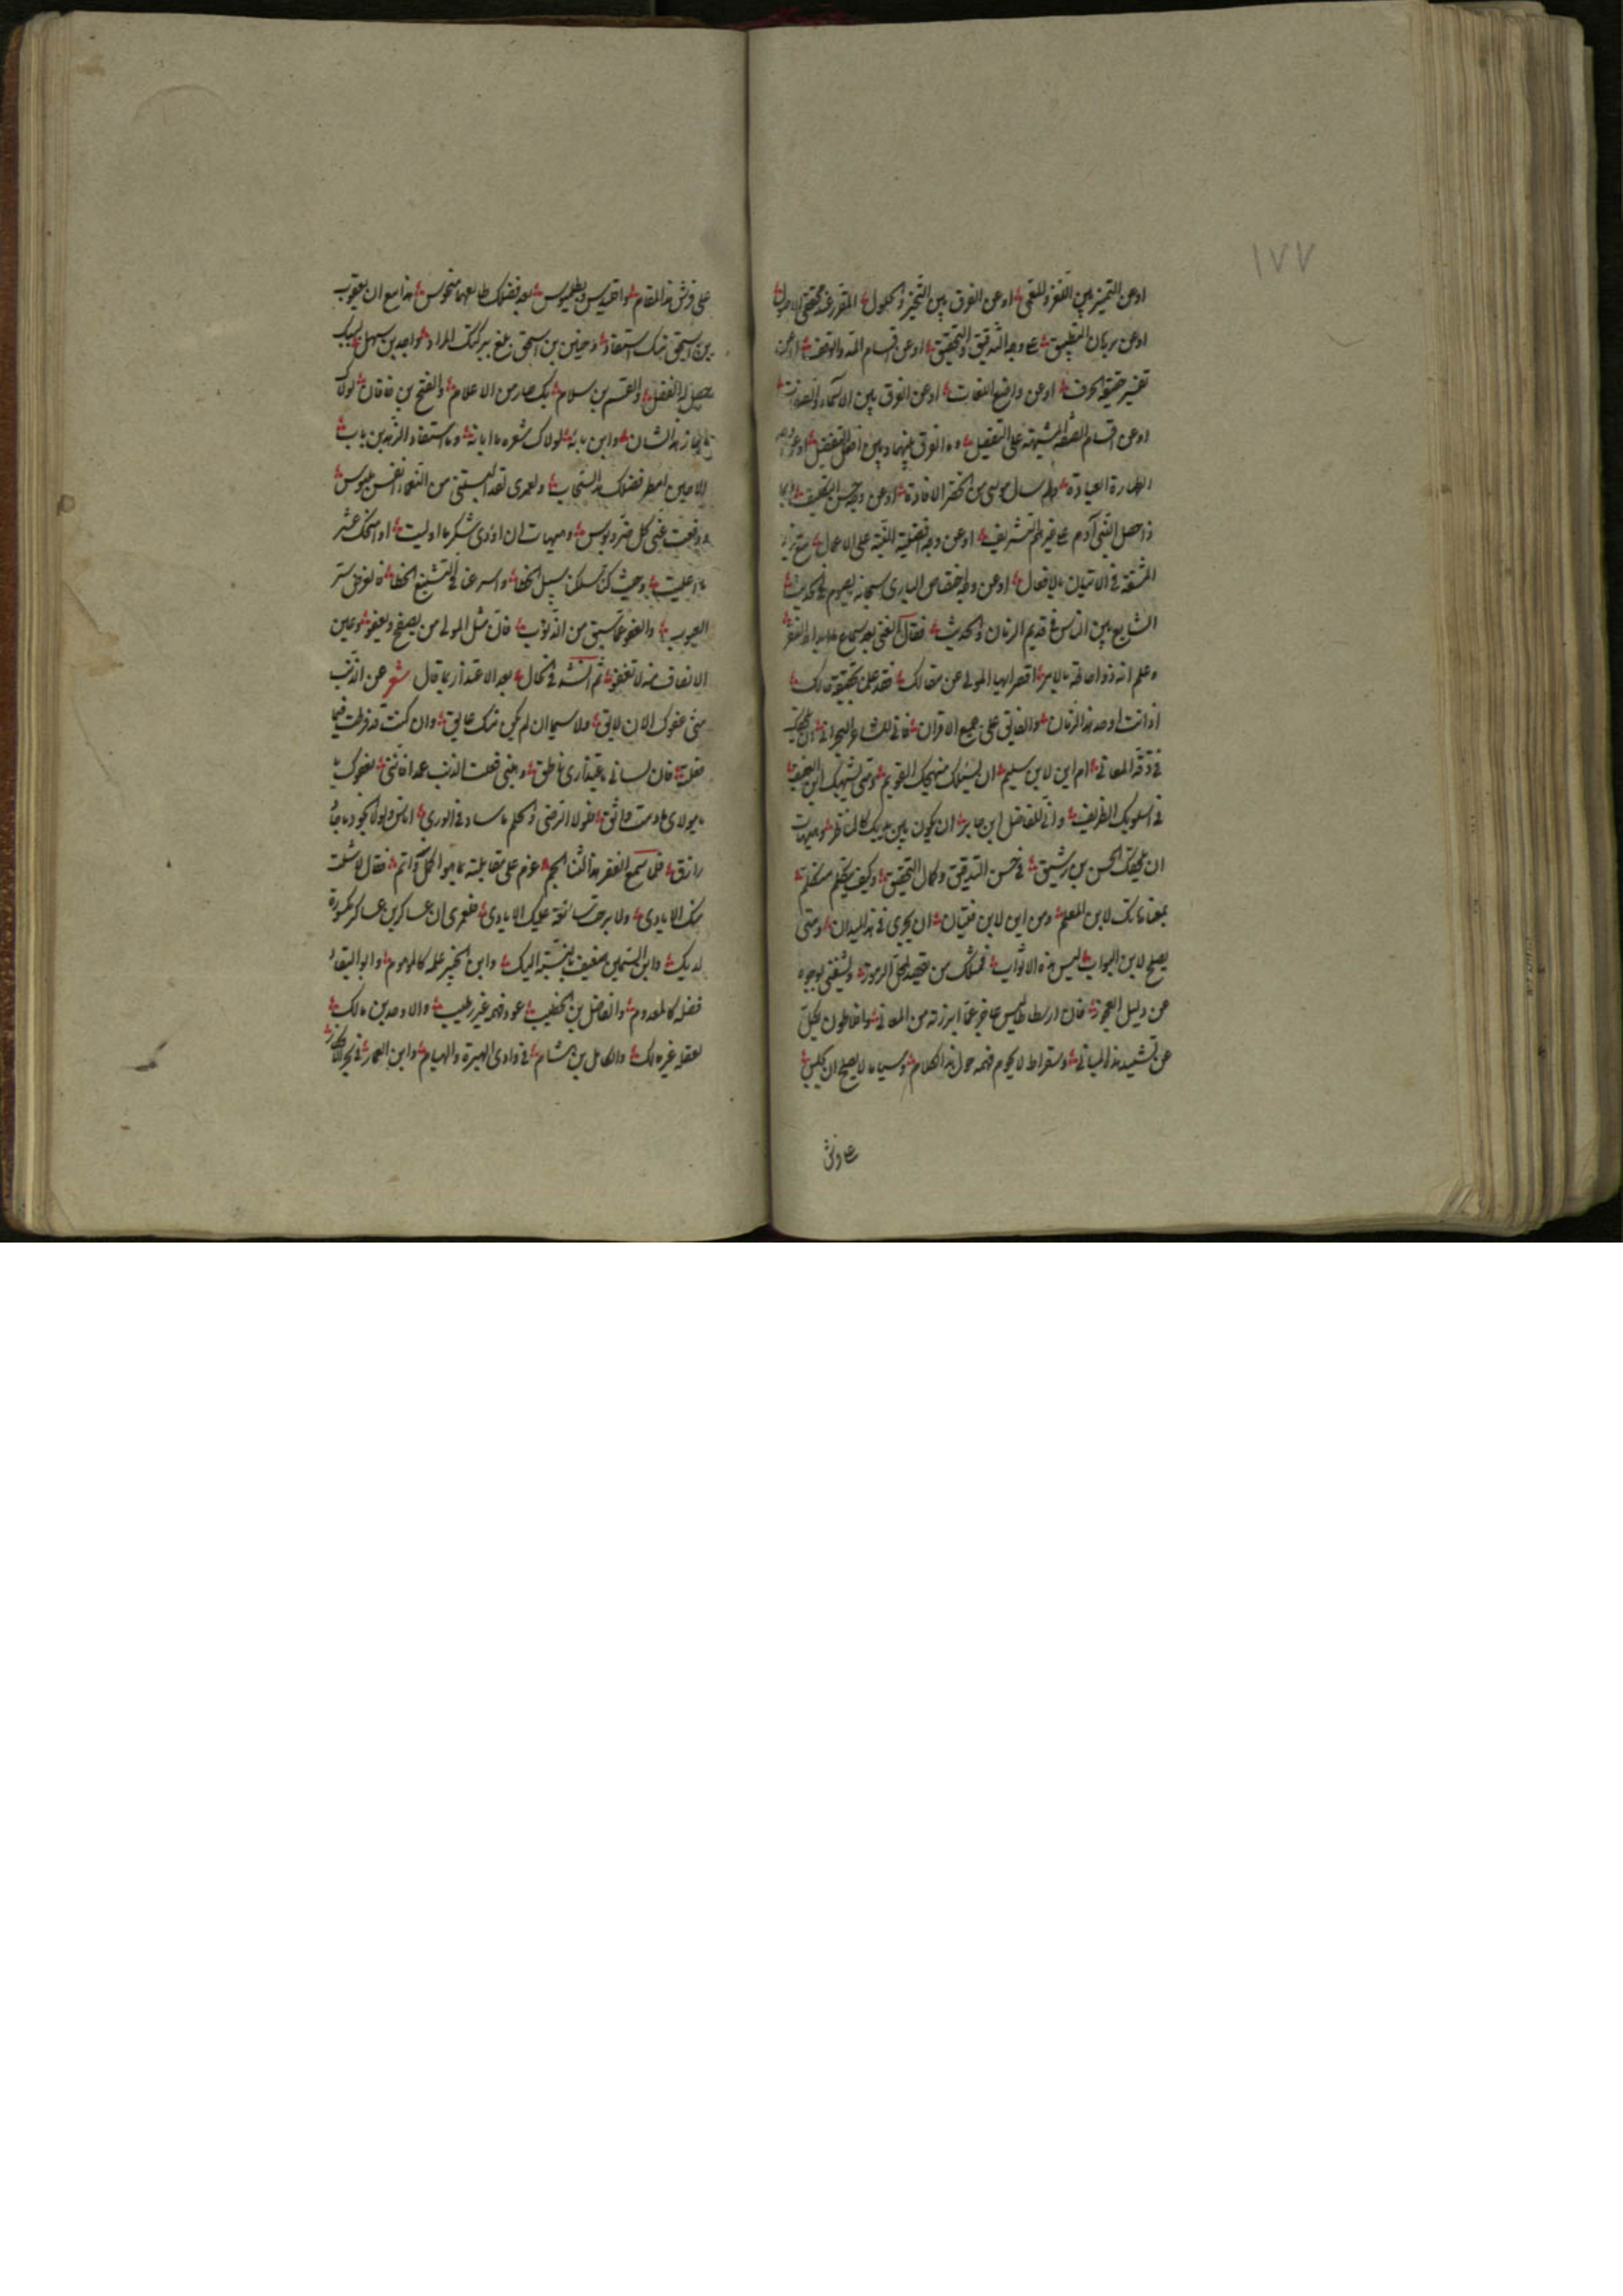 ١٧٧
اوعن التميز بين اللغز والمعمى اوعن الفرق بين التحيز والحلول المقرر عند محققى الاصول
اوعن برهان التطبيق على وجه التدقيق والتحقيق اوعن اقسام المد والوقف اوعن
تفسير حقيقة الحرف اوعن واضع اللغات اوعن الفرق بين الاسماء والصفات
اوعن اقسام الصفة المشبهة على التفصيل وما الفرق بينها وبين افعل التفضيل اوعن وجه
الطهارة العبادة ولم سال موسى من الخضر الافادة اوعن وجه حسن التكليف وبما
ذا حصل لبنى آدم على غيرهم التشريف اوعن وجه افضلية النية على الاعمال مع زيادة
المشقة فى الاتيان بالافعال اوعن وجه اختصاص البارى سبحانه بالصوم فى الحديث
الشايع بين الناس فى قديم الزمان والحديث فقال الغنى بعد سماع هذا الفقر
وعلم انه ذو احاطة بالامر اقصر ايها المولى عن مقالك فقد علمت حقيقة حالك
اذ انت اوحد هذا الزمان والفايق على جميع الاقران فانى للشاعر البحرانى ان يلحقك
فى دقة المعانى ام اين لابن سليم ان يسلك منهجك القويم ومتى يشبهك ابن العفيف
فى اسلوبك الظريف وانى للفاضل ابن جابر ان يكون بين يديك كالمناظر وهيهات
ان يلحقك الحسن بن رشيق فى حسن التدقيق وكمال التحقيق وكيف يتكلم متكلم
بمقاماتك لابن المعلم ومن اين لابن فتيان ان يجرى فى هذا الميدان ومتى
يصلح لابن البواب ليس هذه الاثواب فمثلك من يقصد لحل الرموز ويشفى بوجوه
عن دليل العجوز فان ارسطاطاليس عاجز عما ابرزته من المعانى وافلاطون يكل
عن تشييد هذا المبانى وسقراط لا يحوم فهمه حول هذا الكلام وسيبا لا يصلح ان يجلس
على فرش هذا المقام واقليدس وبطليموس بعد فضلك طالعهما منحوس هذا مع ان يعقوب
بن اسحق منك استفاد وحنين بن اسحق بلغ ببركتك المراد واحمد بن سهل بسببك
حصل له الفضل والقسم بن سلام بك صار من الاعلام والفتح بن خاقان لولاك
ما حاز هذا الشان وابن نباتة لولاك شعره ما ابانه وما استفاد الزهد بن باب
الا حين امطر فضلك هذا السحاب ولعمرى لقد البستنى من النعماء انفس ملبوس
ودفعت عنى كل ضر وبوس وهيهات ان اؤدى شكر ما اوليت او امنحك عشر
ما اعطيت وحيث كنا نسلكن سبيل الخطا واسرعنا فى التشنيع الخطا فالغرض ستر
العيوب والعفو عما سبق من الذنوب فان مثل المولى من يصفح ويعفو وعين
الانصاف منه لا تغفو ثم انشد فى الحال بعد الاعتذار بما قال شعر عن الذنب
منى عفوك الان لايق ولا سيما ان لم يكن منك عايق وان كنت قد فرطت فيما
فعلته فان لسانى باعتذارى ناطق وهبنى فعلت الذنب عمدا فاننى بعفوك يا
مولاى ما دمت واثق فلولا الرضى والحلم ما ساد فى الورى اناس ولولا الجود ما جاد
رازق فلما سمع الفقر هذا الثنا الجم عزم على مقابلته بما هو اكمل واتم فقال لا شلت
منك الايادى ولا برحت سابغة عليك الايادى فلعمرى ان عساكر بن عساكر مكسورة
لديك وابن السمين ضعيف بالنسبة اليك وابن الخبير علمه كالموهوم وابو البقاء
فضله كالمعدوم والفاضل بن الخطيب عود فهمه غير رطيب والاوحد بن مالك
لعقله غير مالك والكامل بن هشام فى وادى الحيرة والهيام وابن العمار فى بحر الافكار
على فرش